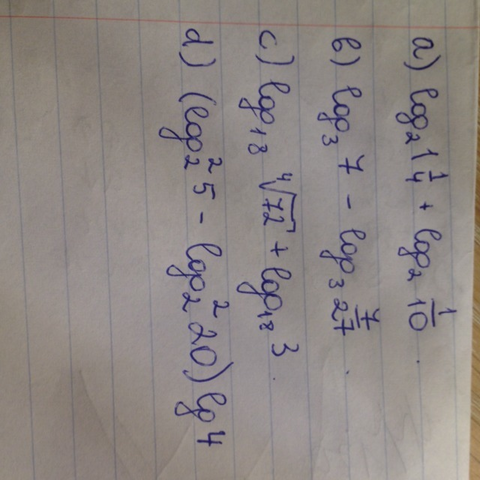 a) log₂ 1 1/4 + log₂ 1/10 .
b) log₃ 7 - log₃ 7/27 .
c) log₁₈ ⁴√72 + log₁₈ 3 .
d) (log₂² 5 - log₂² 20) lg 4